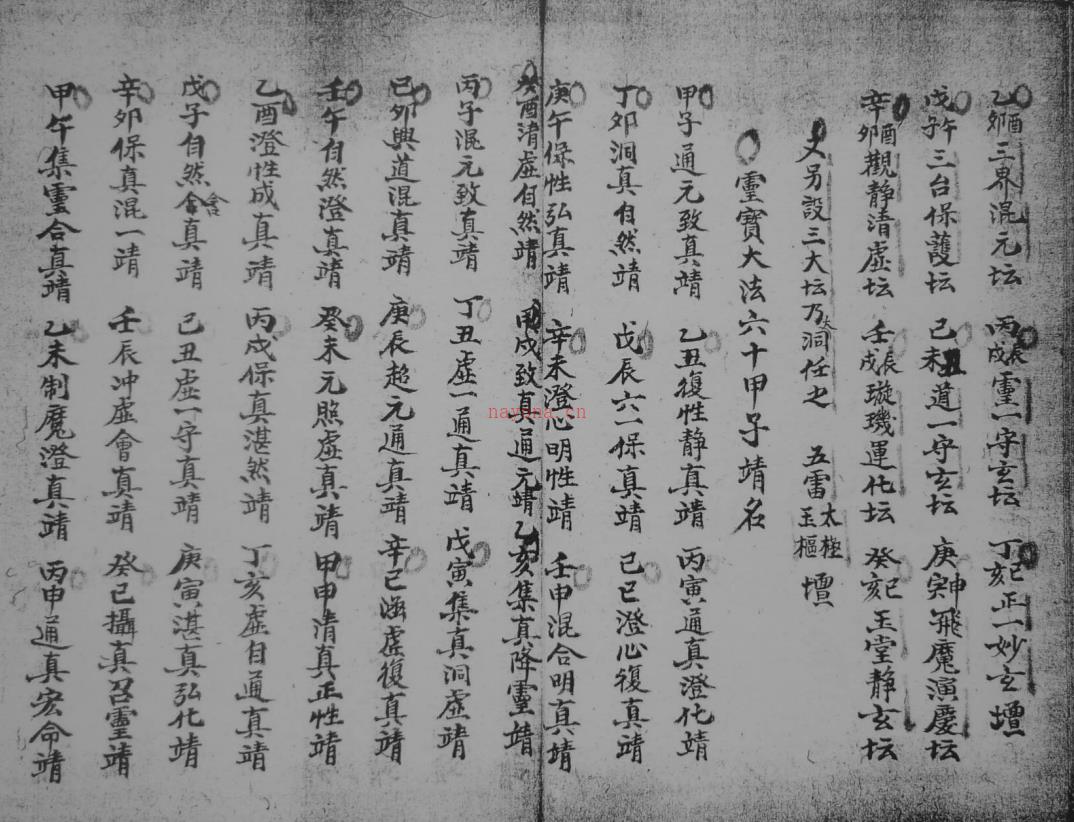 乙卯酉三界混元坛 丙戌辰靈一守玄坛 丁亥巳正一妙玄壇
戊子午三台保護坛 己未丑道一守玄坛 庚寅申飛魔演慶坛
辛卯酉觀静清虛坛 壬戌辰璇璣運化坛 癸亥巳玉堂静玄坛
又另設三大坛乃洞任之 五雷 玉樞 太極 壇
靈寶大法六十甲子靖名
甲子通元致真靖 乙丑復性静真靖 丙寅通真澄化靖
丁卯洞真自然靖 戊辰六一保真靖 己巳澄心復真靖
庚午保性弘真靖 辛未澄心明性靖 壬申混合明真靖
癸酉清虛自然靖 甲戌致真通元靖 乙亥集真降靈靖
丙子混元致真靖 丁丑虛一通真靖 戊寅集真洞虛靖
己卯與道混真靖 庚辰超元通真靖 辛巳涵虛復真靖
壬午自然澄真靖 癸未元照虛真靖 甲申清真正性靖
乙酉澄性成真靖 丙戌保真湛然靖 丁亥虛白通真靖
戊子自然含真靖 己丑虛一守真靖 庚寅湛真弘化靖
辛卯保真混一靖 壬辰冲虛會真靖 癸巳攝真召靈靖
甲午集靈合真靖 乙未制魔澄真靖 丙申通真宏命靖
nayona.cn